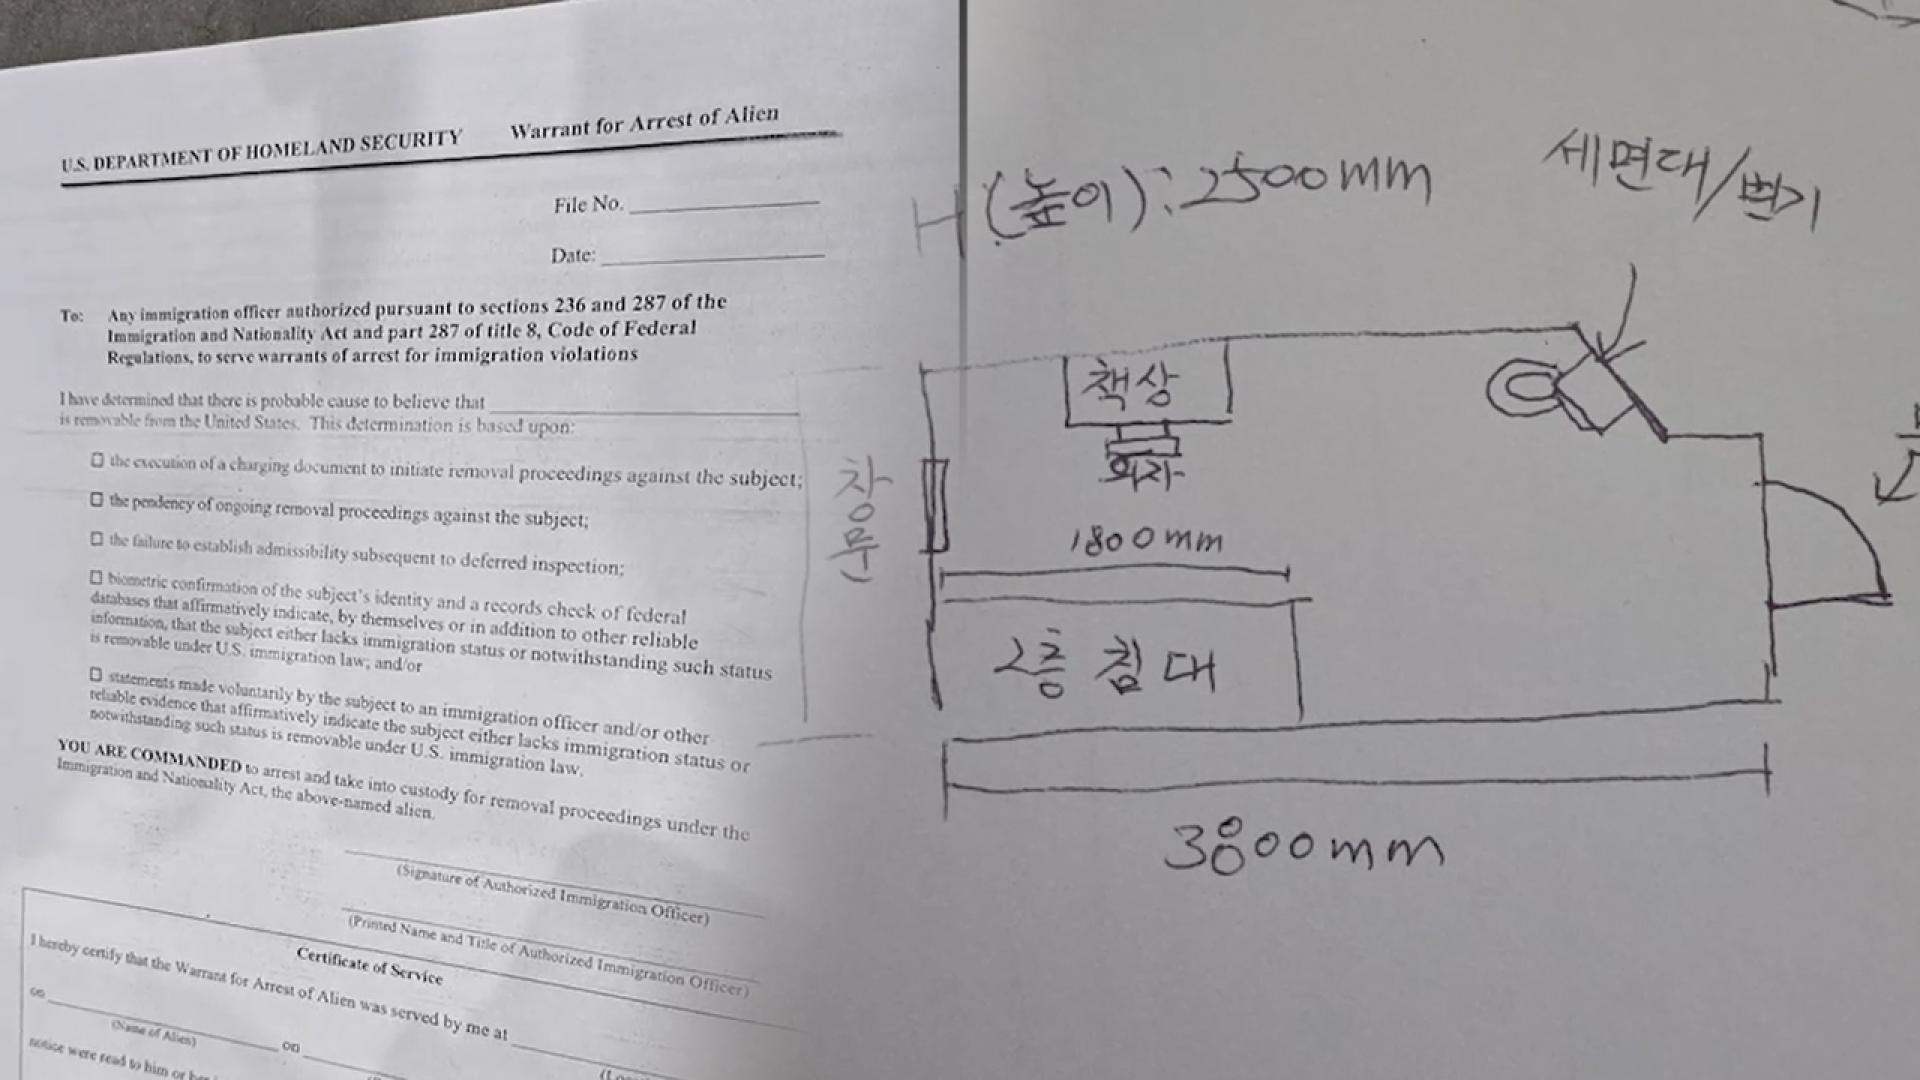 U.S. DEPARTMENT OF HOMELAND SECURITY Warrant for Arrest of Alien
File No.
Date:
To: Any immigration officer authorized pursuant to sections 236 and 287 of the
Immigration and Nationality Act and part 287 of title 8, Code of Federal
Regulations, to serve warrants of arrest for immigration violations
I have determined that there is probable cause to believe that
is removable from the United States. This determination is based upon:
the execution of a charging document to initiate removal proceedings against the subject;
the pendency of ongoing removal proceedings against the subject;
the failure to establish admissibility subsequent to deferred inspection;
biometric confirmation of the subject's identity and a records check of federal
databases that affirmatively indicate, by themselves or in addition to other reliable
information, that the subject either lacks immigration status or notwithstanding such status
is removable under U.S. immigration law; and/or
statements made voluntarily by the subject to an immigration officer and/or other
reliable evidence that affirmatively indicate the subject either lacks immigration status or
notwithstanding such status is removable under U.S. immigration law.
YOU ARE COMMANDED to arrest and take into custody for removal proceedings under the
Immigration and Nationality Act, the above-named alien.
(Signature of Authorized Immigration Officer)
(Printed Name and Title of Authorized Immigration Officer)
Certificate of Service
I hereby certify that the Warrant for Arrest of Alien was served by me at
on
(Name of Alien)
on
notice were read to him or
H (높이): 2500mm
세면대/변기
책상
의자
창문
1800mm
2층 침대
3800mm